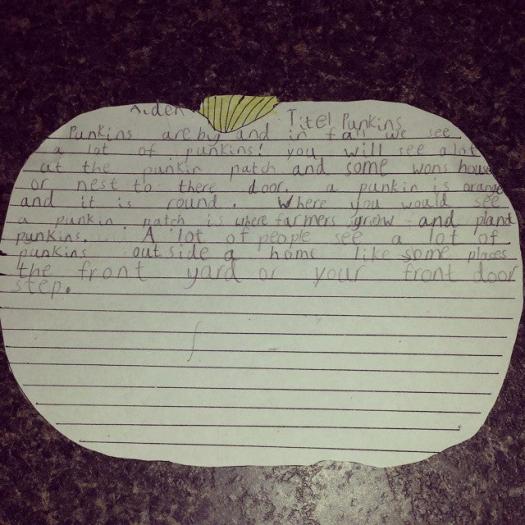 Aiden Titel Punkins
Punkins are big and in fall we see
a lot of punkins! you will see alot
at the punkin patch and some wons house
or nest to there door. a punkin is orange
and it is round. Where you would see
a punkin patch is where farmers grow and plant
punkins. A lot of people see a lot of
punkins outside a home like some places
the front yard or your front door
step.